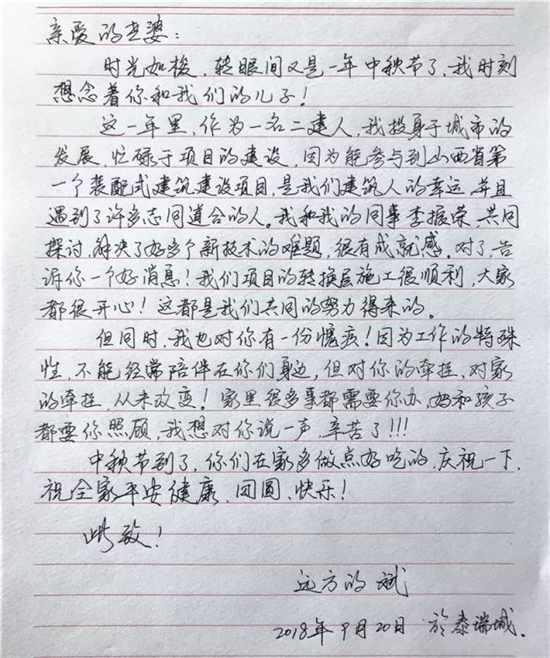 亲爱的老婆：
时光如梭，转眼间又是一年中秋节了，我时刻
想念着你和我们的儿子！
这一年里，作为一名二建人，我投身于城市的
发展，忙碌于项目的建设，因为能参与到山西省第
一个装配式建筑建设项目，是我们建筑人的幸运，并且
遇到了许多志同道合的人。我和我的同事李振荣，共同
探讨，解决了好多个新技术的难题，很有成就感。对了，告
诉你一个好消息！我们项目的转换层施工很顺利，大家
都很开心！这都是我们共同的努力得来的。
但同时，我也对你有一份愧疚！因为工作的特殊
性，不能经常陪伴在你们身边，但对你的牵挂，对家
的牵挂，从未改变！家里很多事都需要你办，妈和孩子
都要你照顾，我想对你说一声，辛苦了！！！
中秋节到了，你们在家多做点好吃的，庆祝一下，
祝全家平安健康，团圆，快乐！
此致！
远方的斌
2018年9月20日 於泰瑞城.